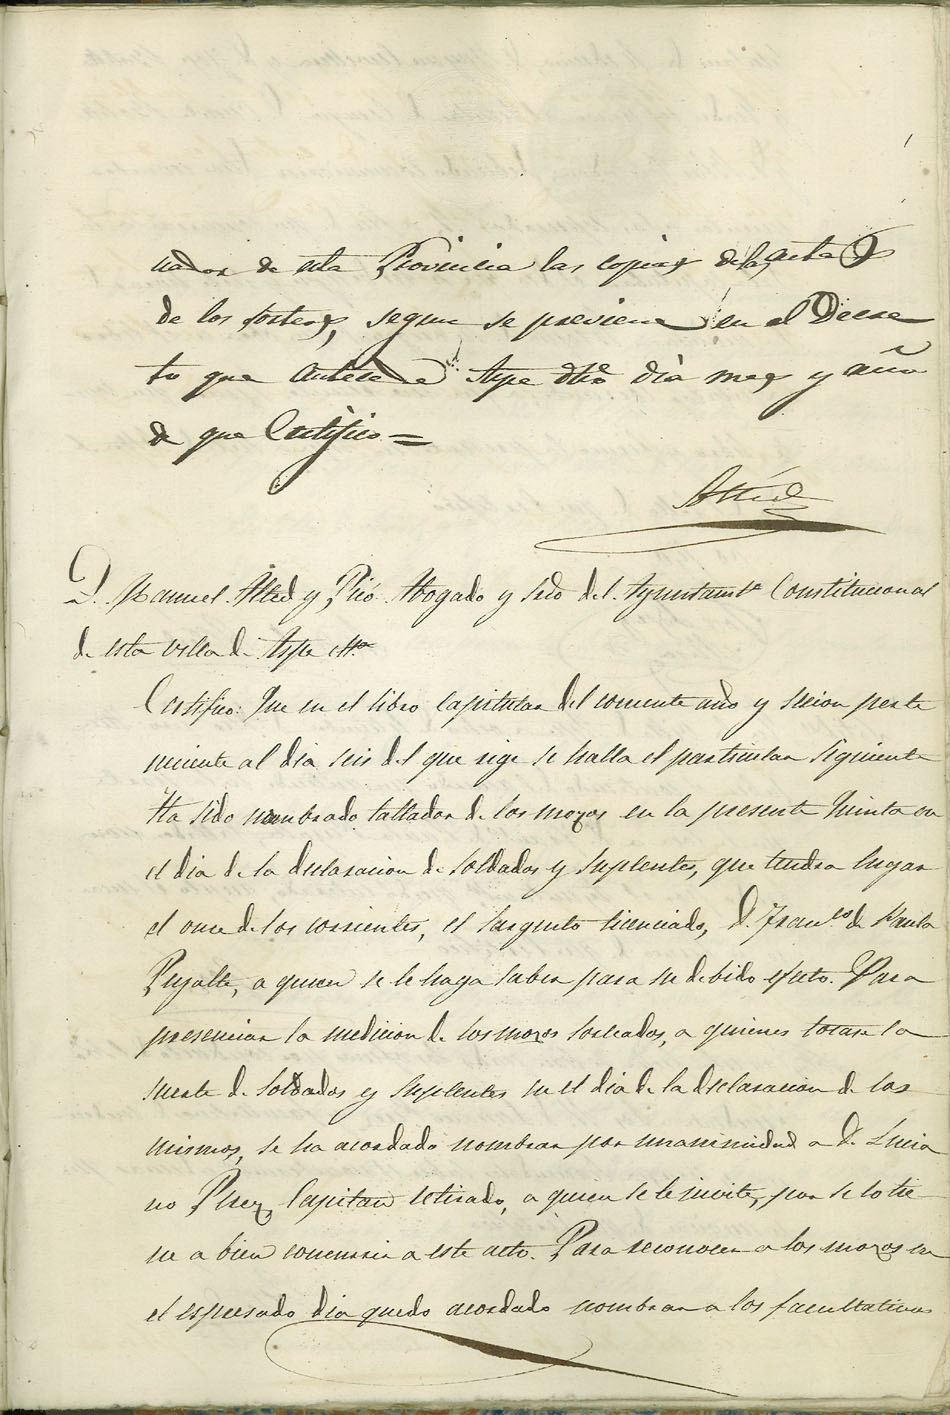 nador de esta Provincia las copias de las actas
de los sorteos, segun se previene en el Decre
to que antecede Aspe dho dia mes y año
de que Certifico =
Alted
D. Manuel Alted y Pló Abogado y Srio del Ayuntamto Constitucional
de esta villa de Aspe etta
Certifico: Que en el libro Capitular del corriente año y sesion perte
neciente al dia seis del que rige se halla el particular siguiente
Ha sido nombrado tallador de los mozos en la presente Quinta en
el dia de la declaracion de soldados y suplentes, que tendra lugar
el once de los corrientes, el Sargento licenciado, D. Franco de Paula
Pujalte, a quien se le haga saber para su debido efecto. Para
presenciar la medicion de los mozos sorteados, a quienes tocare la
suerte de soldados y suplentes en el dia de la declaracion de los
mismos, se ha acordado nombrar por unanimidad a D. Lucia
no Perez, Capitan retirado, a quien se le invite, por se lo tie
ne a bien concurrir a este acto. Para reconocer a los mozos en
el espresado dia quedo acordado nombrar a los facultativos